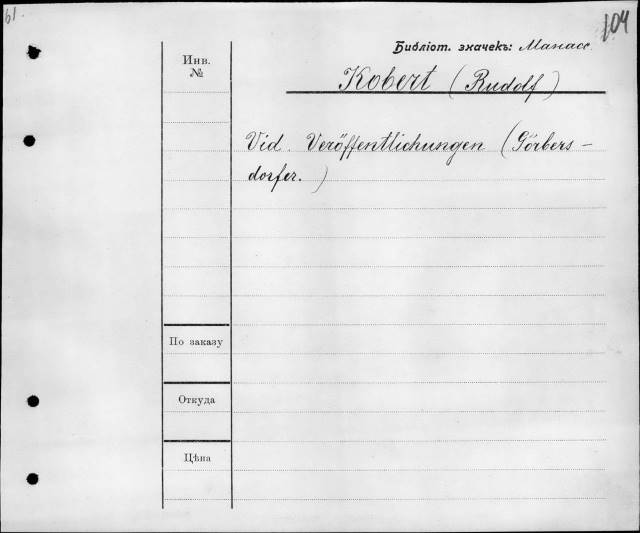 61.
104
Библіот. значекъ: Манасс.
Инв.
№
Kobert (Rudolf)
Vid. Veröffentlichungen (Görbers-
dorfer.)
По заказу
Откуда
Цѣна